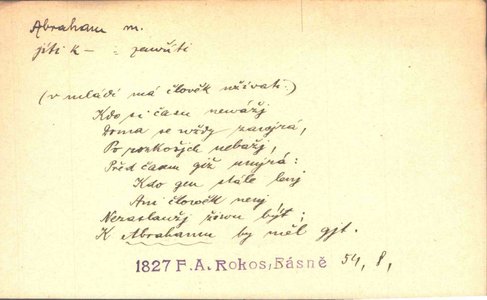 Abraham m.
jíti k – = zemříti
(v mládí má člověk užívati.)
Kdo si času neváží
Doma se wždy zawjrá,
Po rozkošjch nebažj,
Před časem giž umjrá:
Kdo gen stále lenj
Ani člowěk nenj
Nezaslaužj žiwu být;
K Abrahamu by měl gjt.
1827 F. A. Rokos, Básně 54, 8,